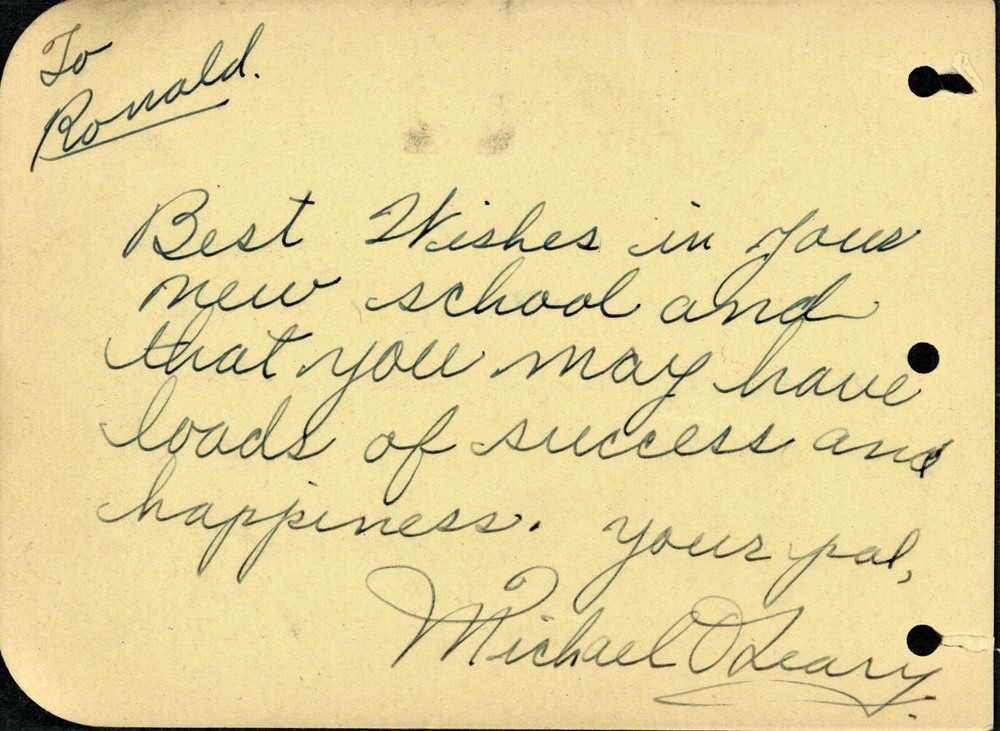 To
Ronald.
Best Wishes in your
new school and
that you may have
loads of success and
happiness. Your pal,
Michael O'Leary.